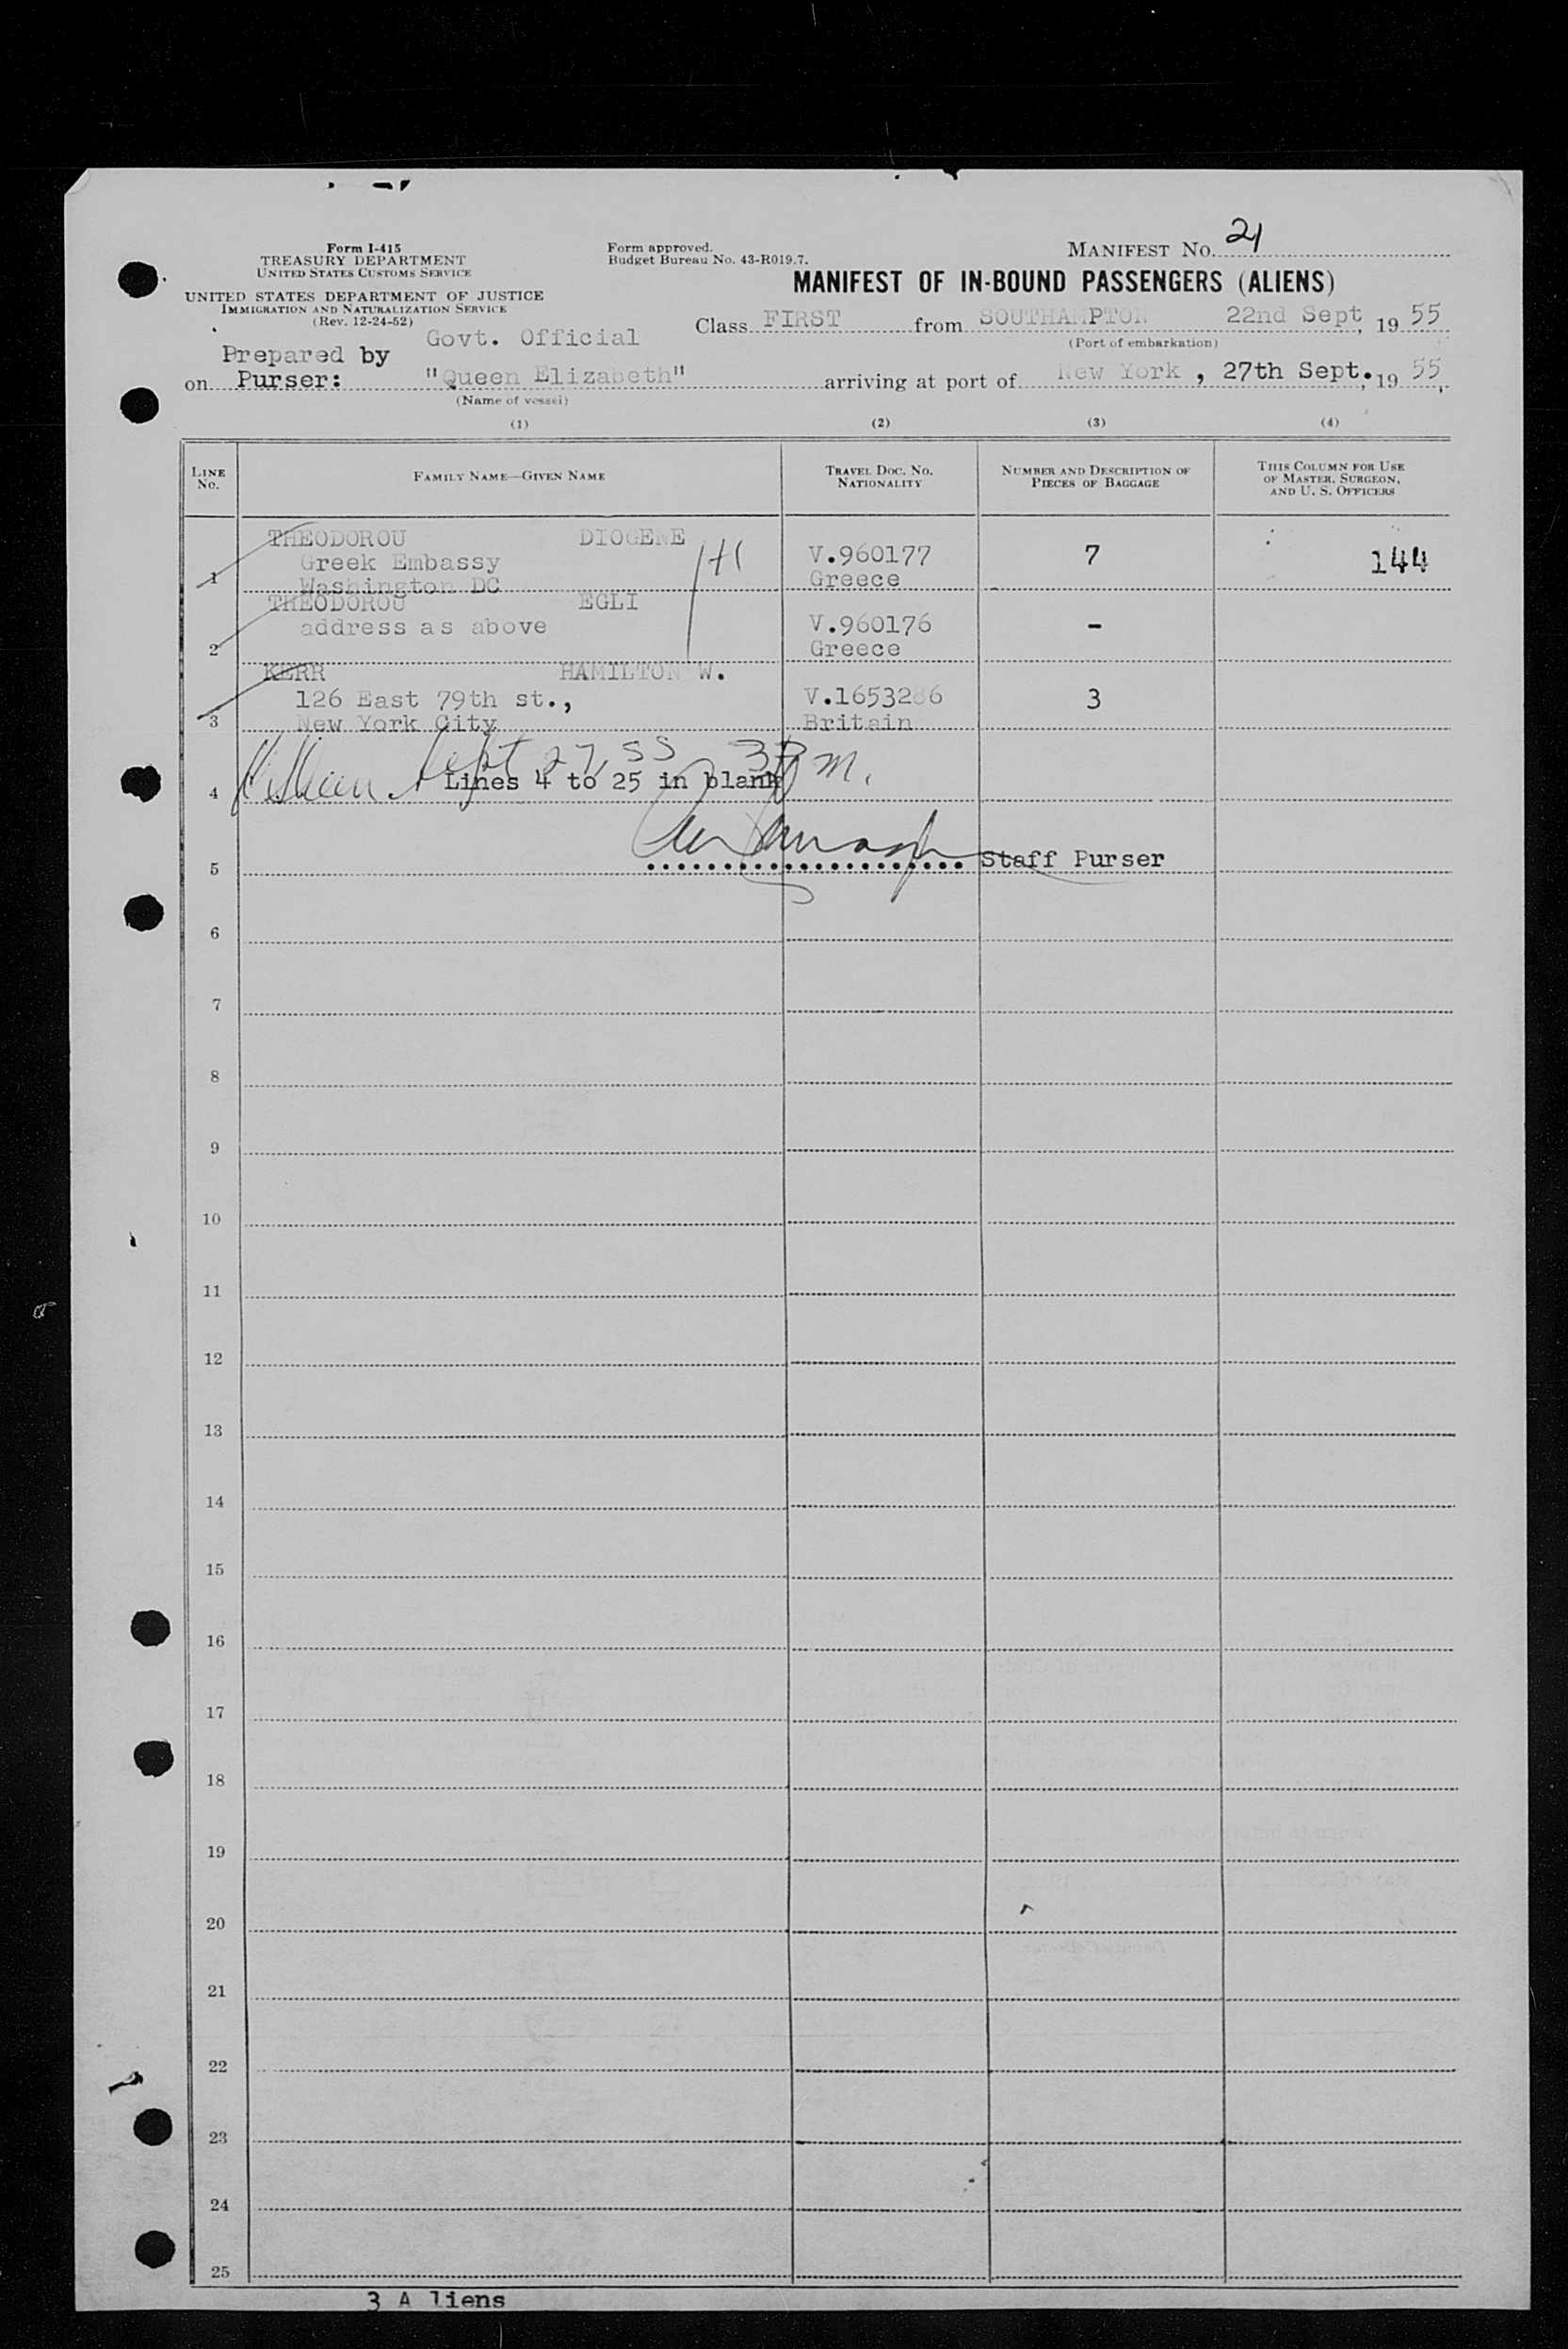 MANIFEST NO. 21
Form I-415
TREASURY DEPARTMENT
UNITED STATES CUSTOMS SERVICE
Form approved.
Budget Bureau No. 43-R019.7.
MANIFEST OF IN-BOUND PASSENGERS (ALIENS)
UNITED STATES DEPARTMENT OF JUSTICE
IMMIGRATION AND NATURALIZATION SERVICE
(Rev. 12-24-52)
Govt. Official
Class FIRST from SOUTHAMPTON 22nd Sept, 19 55
(Port of embarkation)
Prepared by
on Purser: "Queen Elizabeth" arriving at port of New York, 27th Sept. 19 55,
(Name of vessel)
(1) (2) (3) (4)
LINE NO.
FAMILY NAME—GIVEN NAME
TRAVEL DOC. NO.
NATIONALITY
NUMBER AND DESCRIPTION OF
PIECES OF BAGGAGE
THIS COLUMN FOR USE
OF MASTER, SURGEON,
AND U. S. OFFICERS
THEODOROU DIOGENE
Greek Embassy V.960177 7 144
1 Washington DC Greece
THEODOROU EGLI
address as above V.960176 -
2 Greece
KERR HAMILTON W.
126 East 79th st., V.1653286 3
3 New York City Britain
Sept 27, 55 3 P M.
4 Lines 4 to 25 in blank
5 Staff Purser
6
7
8
9
10
11
12
13
14
15
16
17
18
19
20
21
22
23
24
25
3 A liens